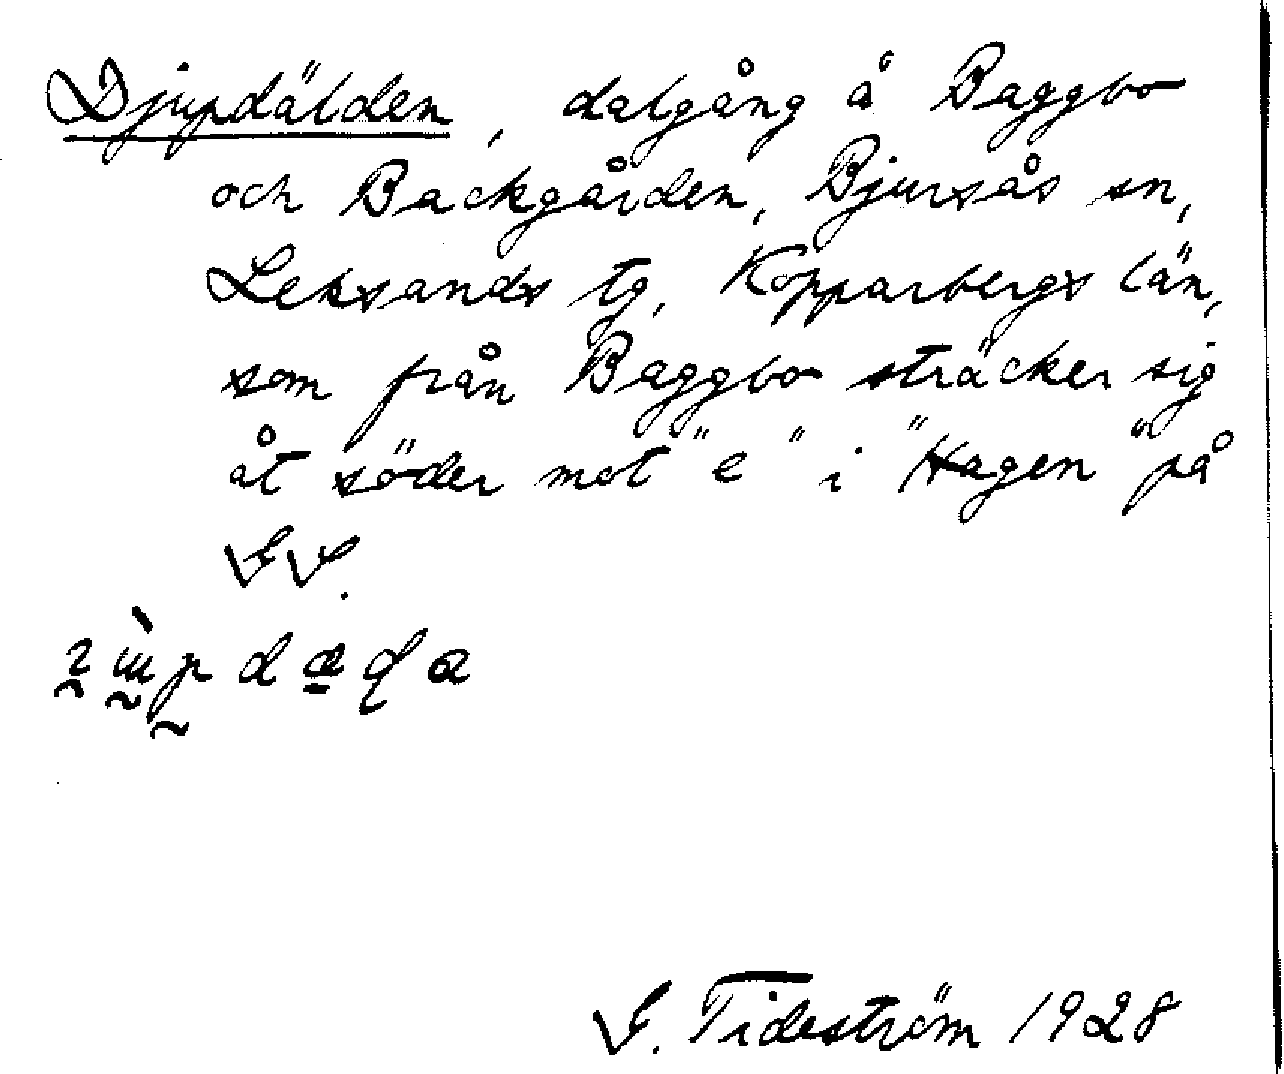 Djupdälden, dalgång å Baggbo
och Backgården, Bjursås sn,
Leksands tg, Kopparbergs län,
som från Baggbo sträcker sig
åt söder mot "e" i "Hagen" på
GS.
G. Tideström 1928